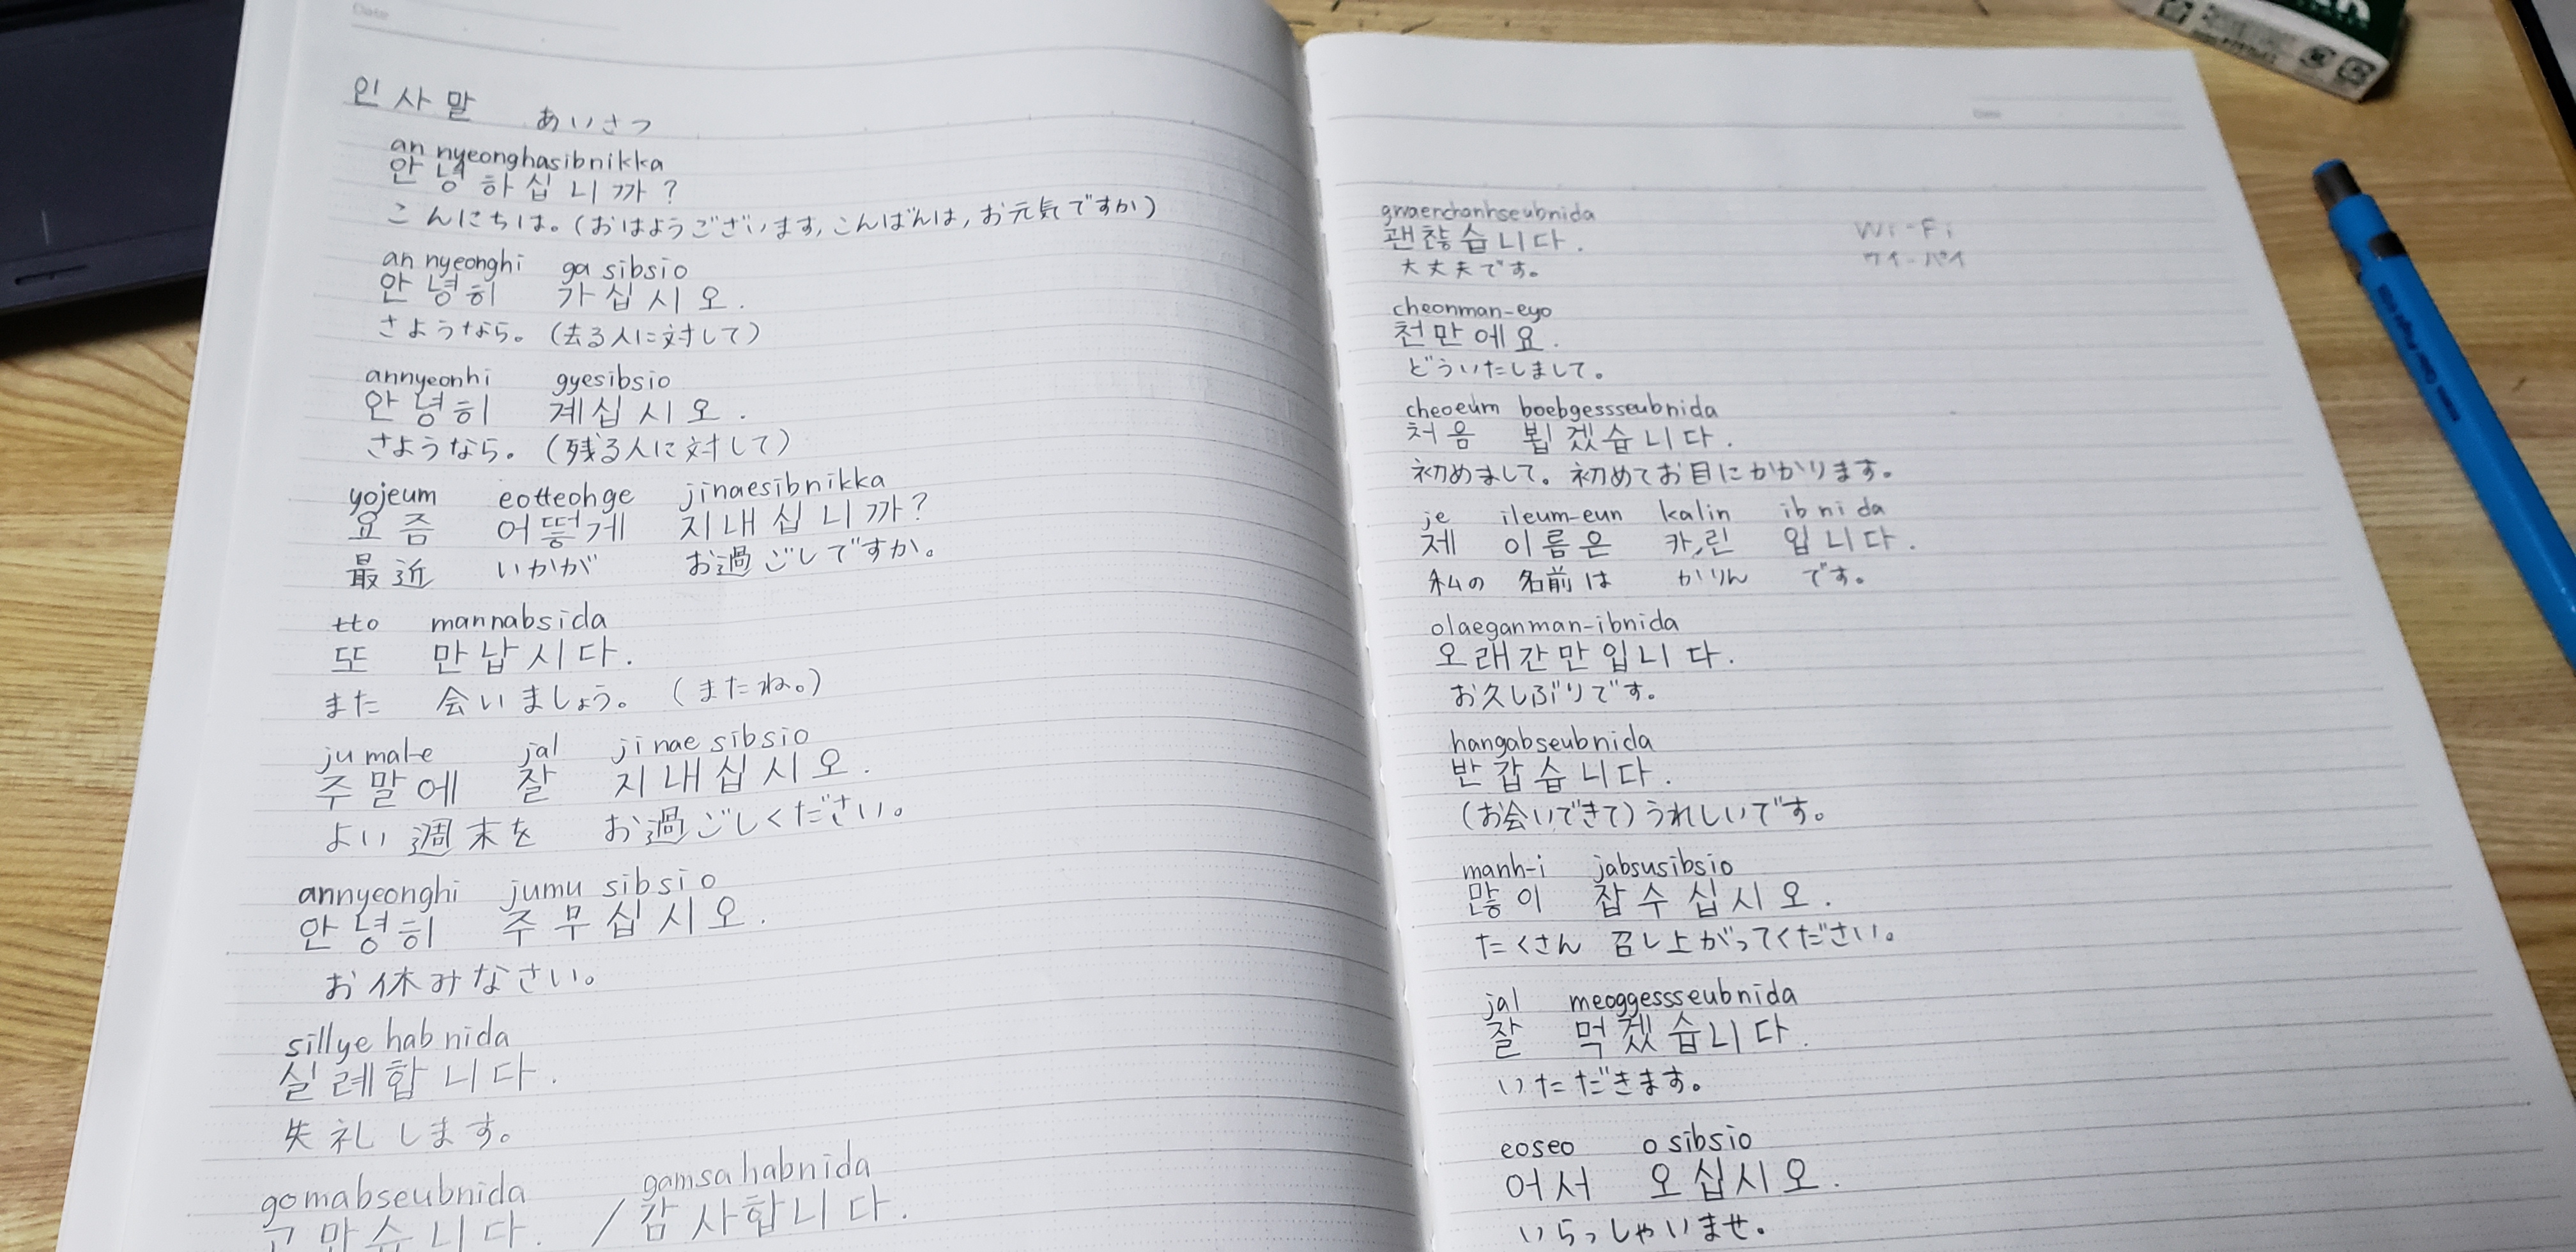 Date
인사말 あいさつ
an nyeonghasibnikka
안녕하십니까?
こんにちは。(おはようございます,こんばんは,お元気ですか)
an nyeonghi ga sibsio
안녕히 가십시오.
さようなら。(去る人に対して)
annyeonhi gyesibsio
안녕히 계십시오.
さようなら。(残る人に対して)
yojeum eotteohge jinaesibnikka
요즘 어떻게 지내십니까?
最近 いかが お過ごしですか。
tto mannabsida
또 만납시다.
また 会いましょう。(またね。)
ju mal-e jal jinae sibsio
주말에 잘 지내십시오.
よい週末を お過ごしください。
annyeonghi jumu sibsio
안녕히 주무십시오.
お休みなさい。
sillye hab nida
실례합니다.
失礼します。
gomabseubnida / gamsa habnida
고맙습니다. 감사합니다.
Date
gwaenchanhseubnida
괜찮습니다.
大丈夫です。
Wi-Fi
ワイ-パイ
cheonman-eyo
천만에요.
どういたしまして。
cheoeum boebgessseubnida
처음 뵙겠습니다.
初めまして。初めてお目にかかります。
je ileum-eun kalin ibnida
제 이름은 카린 입니다.
私の 名前は かりん です。
olaeganman-ibnida
오래간만입니다.
お久しぶりです。
hangabseubnida
반갑습니다.
(お会いできて)うれしいです。
manh-i jabsusibsio
많이 잡수십시오.
たくさん 召し上がってください。
jal meoggessseubnida
잘 먹겠습니다.
いただきます。
eoseo o sibsio
어서 오십시오.
いらっしゃいませ。